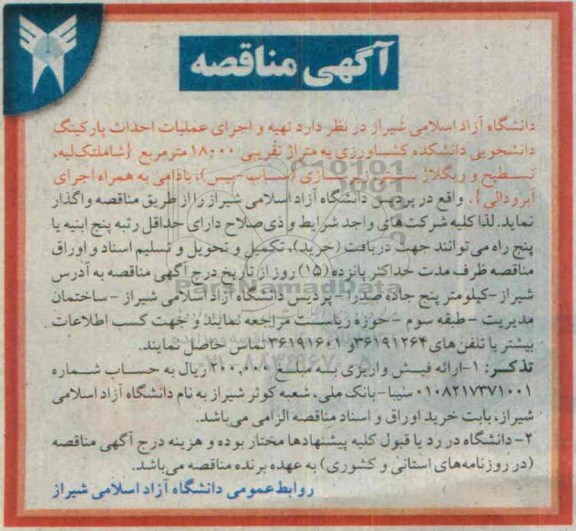 آگهی مناقصه
دانشگاه آزاد اسلامی شیراز در نظر دارد تهیه و اجرای عملیات احداث پارکینگ
دانشجویی دانشکده کشاورزی به متراژ تقریبی ۱۸۰۰۰ مترمربع {شامل تک‌لبه،
تسطیح و ریگلاژ سازی (ساب -بیس)، بادامی به همراه اجرای
ایرودالی}، واقع در پردیس دانشگاه آزاد اسلامی شیراز را از طریق مناقصه واگذار
نماید. لذا کلیه شرکت‌های واجد شرایط و ذی‌صلاح دارای حداقل رتبه پنج ابنیه یا
پنج راه می‌توانند جهت دریافت (خرید)، تکمیل و تحویل و تسلیم اسناد و اوراق
مناقصه ظرف مدت حداکثر پانزده (۱۵) روز از تاریخ درج آگهی مناقصه به آدرس
شیراز -کیلومتر پنج جاده صدرا - پردیس دانشگاه آزاد اسلامی شیراز - ساختمان
مدیریت - طبقه سوم - حوزه ریاست مراجعه نمایند و جهت کسب اطلاعات
بیشتر با تلفن‌های ۳۶۱۹۱۲۶۴ و ۳۶۱۹۱۶۰۱ تماس حاصل نمایند.
تذکر: ۱-ارائه فیش واریزی به مبلغ ۲۰۰,۰۰۰ ریال به حساب شماره
۰۱۰۸۲۱۷۳۷۱۰۰۱ سیبا-بانک ملی، شعبه کوثر شیراز به نام دانشگاه آزاد اسلامی
شیراز، بابت خرید اوراق و اسناد مناقصه الزامی می‌باشد.
۲-دانشگاه در رد یا قبول کلیه پیشنهادها مختار بوده و هزینه درج آگهی مناقصه
(در روزنامه‌های استانی و کشوری) به عهده برنده مناقصه می‌باشد.
روابط عمومی دانشگاه آزاد اسلامی شیراز
ParsNamadData